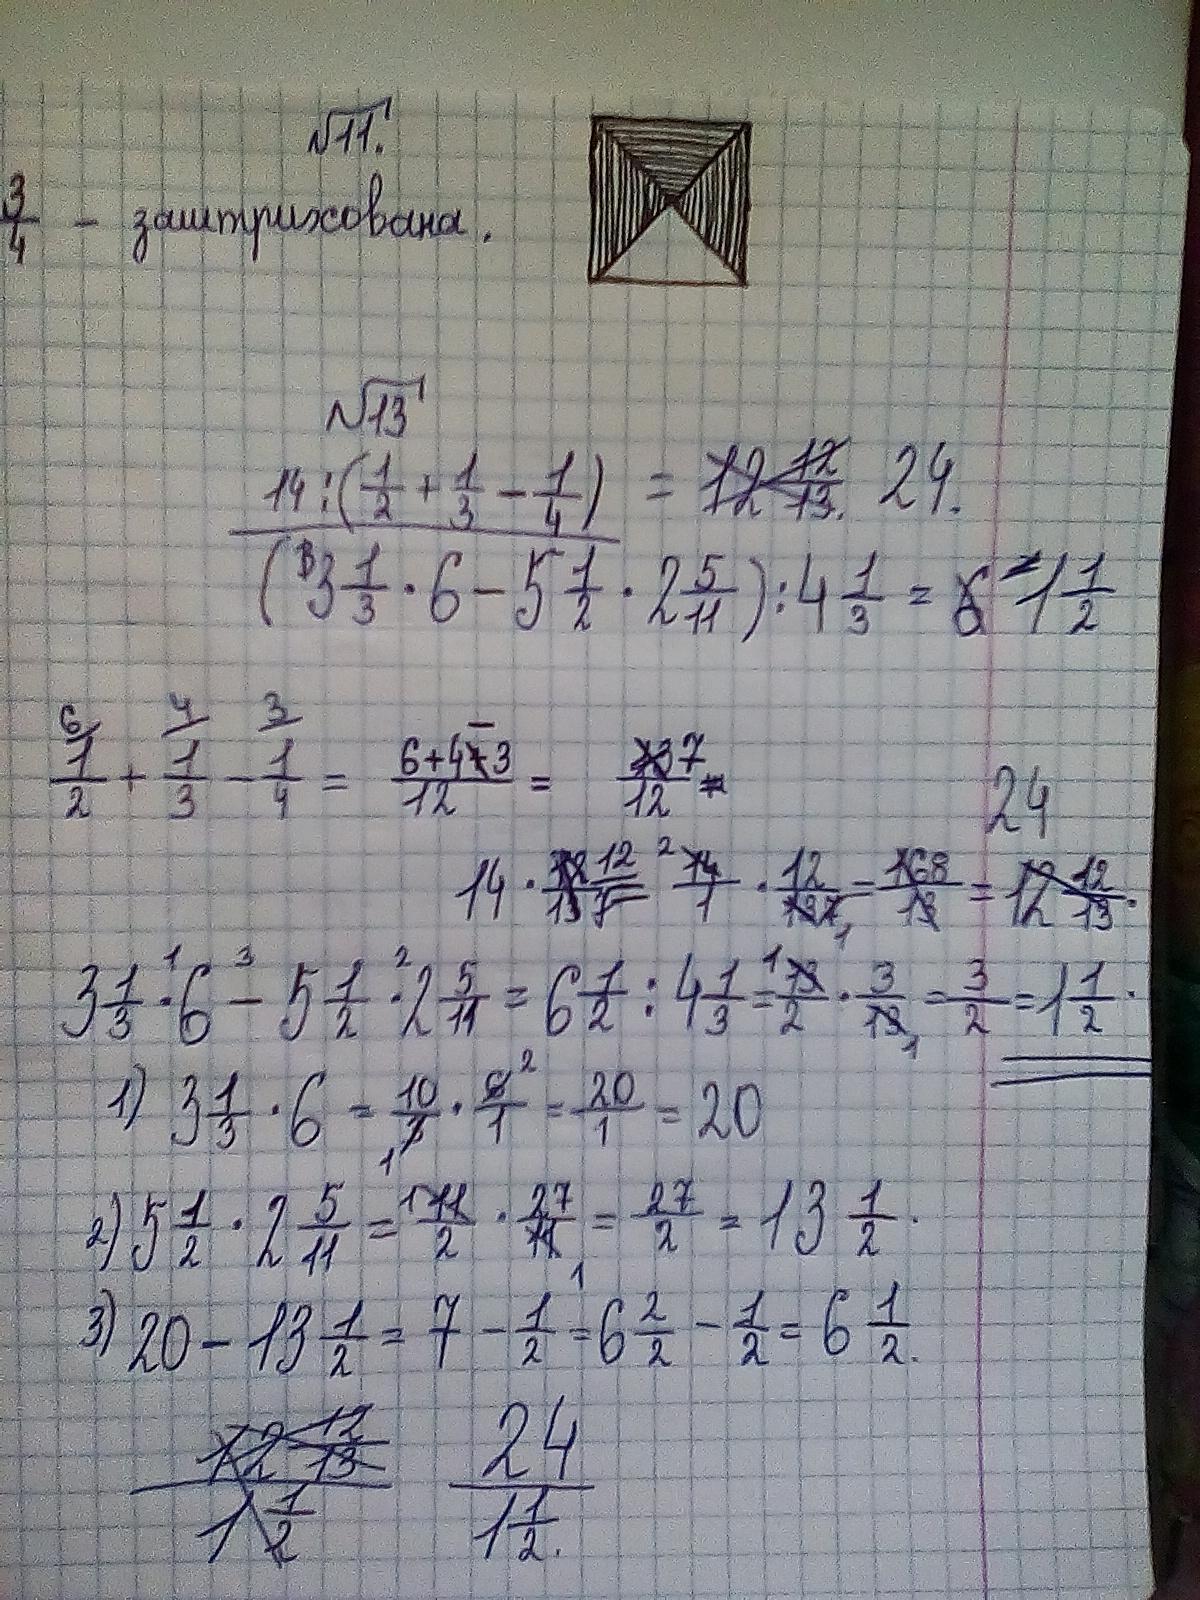 №11.
3/4 - заштрихована.
№13
14:(1/2 + 1/3 - 1/4) = 12 12/13. 24.
(3 1/3 · 6 - 5 1/2 · 2 5/11) : 4 1/3 = 6 = 1 1/2
6/ 4/ 3/
1/2 + 1/3 - 1/4 = 6+4-3/12 = 7/12 =
24
14 · 12/7 = 2 14/1 · 12/7 1 = 168/13 = 12 12/13.
3 1/3 ·¹ 6 -³ 5 1/2 ·² 2 5/11 = 6 1/2 : 4 1/3 = 1 13/2 · 3/13 1 = 3/2 = 1 1/2.
1) 3 1/3 · 6 = 10/3 1 · 6/1 2 = 20/1 = 20
2) 5 1/2 · 2 5/11 = 1 11/2 · 27/11 1 = 27/2 = 13 1/2.
3) 20 - 13 1/2 = 7 - 1/2 = 6 2/2 - 1/2 = 6 1/2.
12 12/13 24
1 1/2 1 1/2.